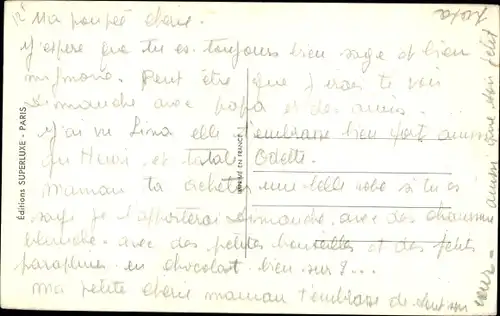 Ma poupée chérie.
J'espère que tu es toujours bien sage et bien
mignonne. Peut être que j'irais te voir
dimanche avec papa et des amis.
J'ai vu Lina elle t'embrasse bien fort aussi
qu Henri et tatale Odette.
maman ta achetée une belle robe si tu es
sage je l'apporterai dimanche avec des chaussure
blanche avec des petites bouteilles et des petits
parapluies en chocolat bien sur ?...
ma petite chérie maman t'embrasse de tout son
cœur -
Éditions SUPERLUXE - PARIS